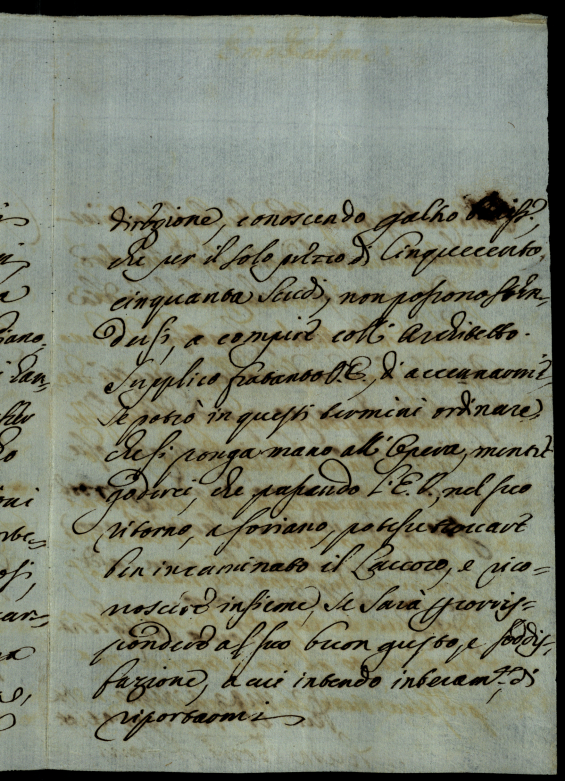 direzione, conoscendo
che per il solo prezzo di Cinquecento
cinquanta Scudi, non possono sten-
dersi, a compire coll' Architetto.
Supplico frattanto V.E, di accennarmi,
se potrò in questi termini ordinare,
che si ponga mano all' Opera, mentre
goderei, che passando l'E.V, nel suo
ritorno, a Soriano, potesse trovare
ben incaminato il Lavoro, e rico-
noscere insieme, se sarà per corris-
pondere al suo buon gusto, e soddis-
fazione, a cui intendo interam.te di
riportarmi